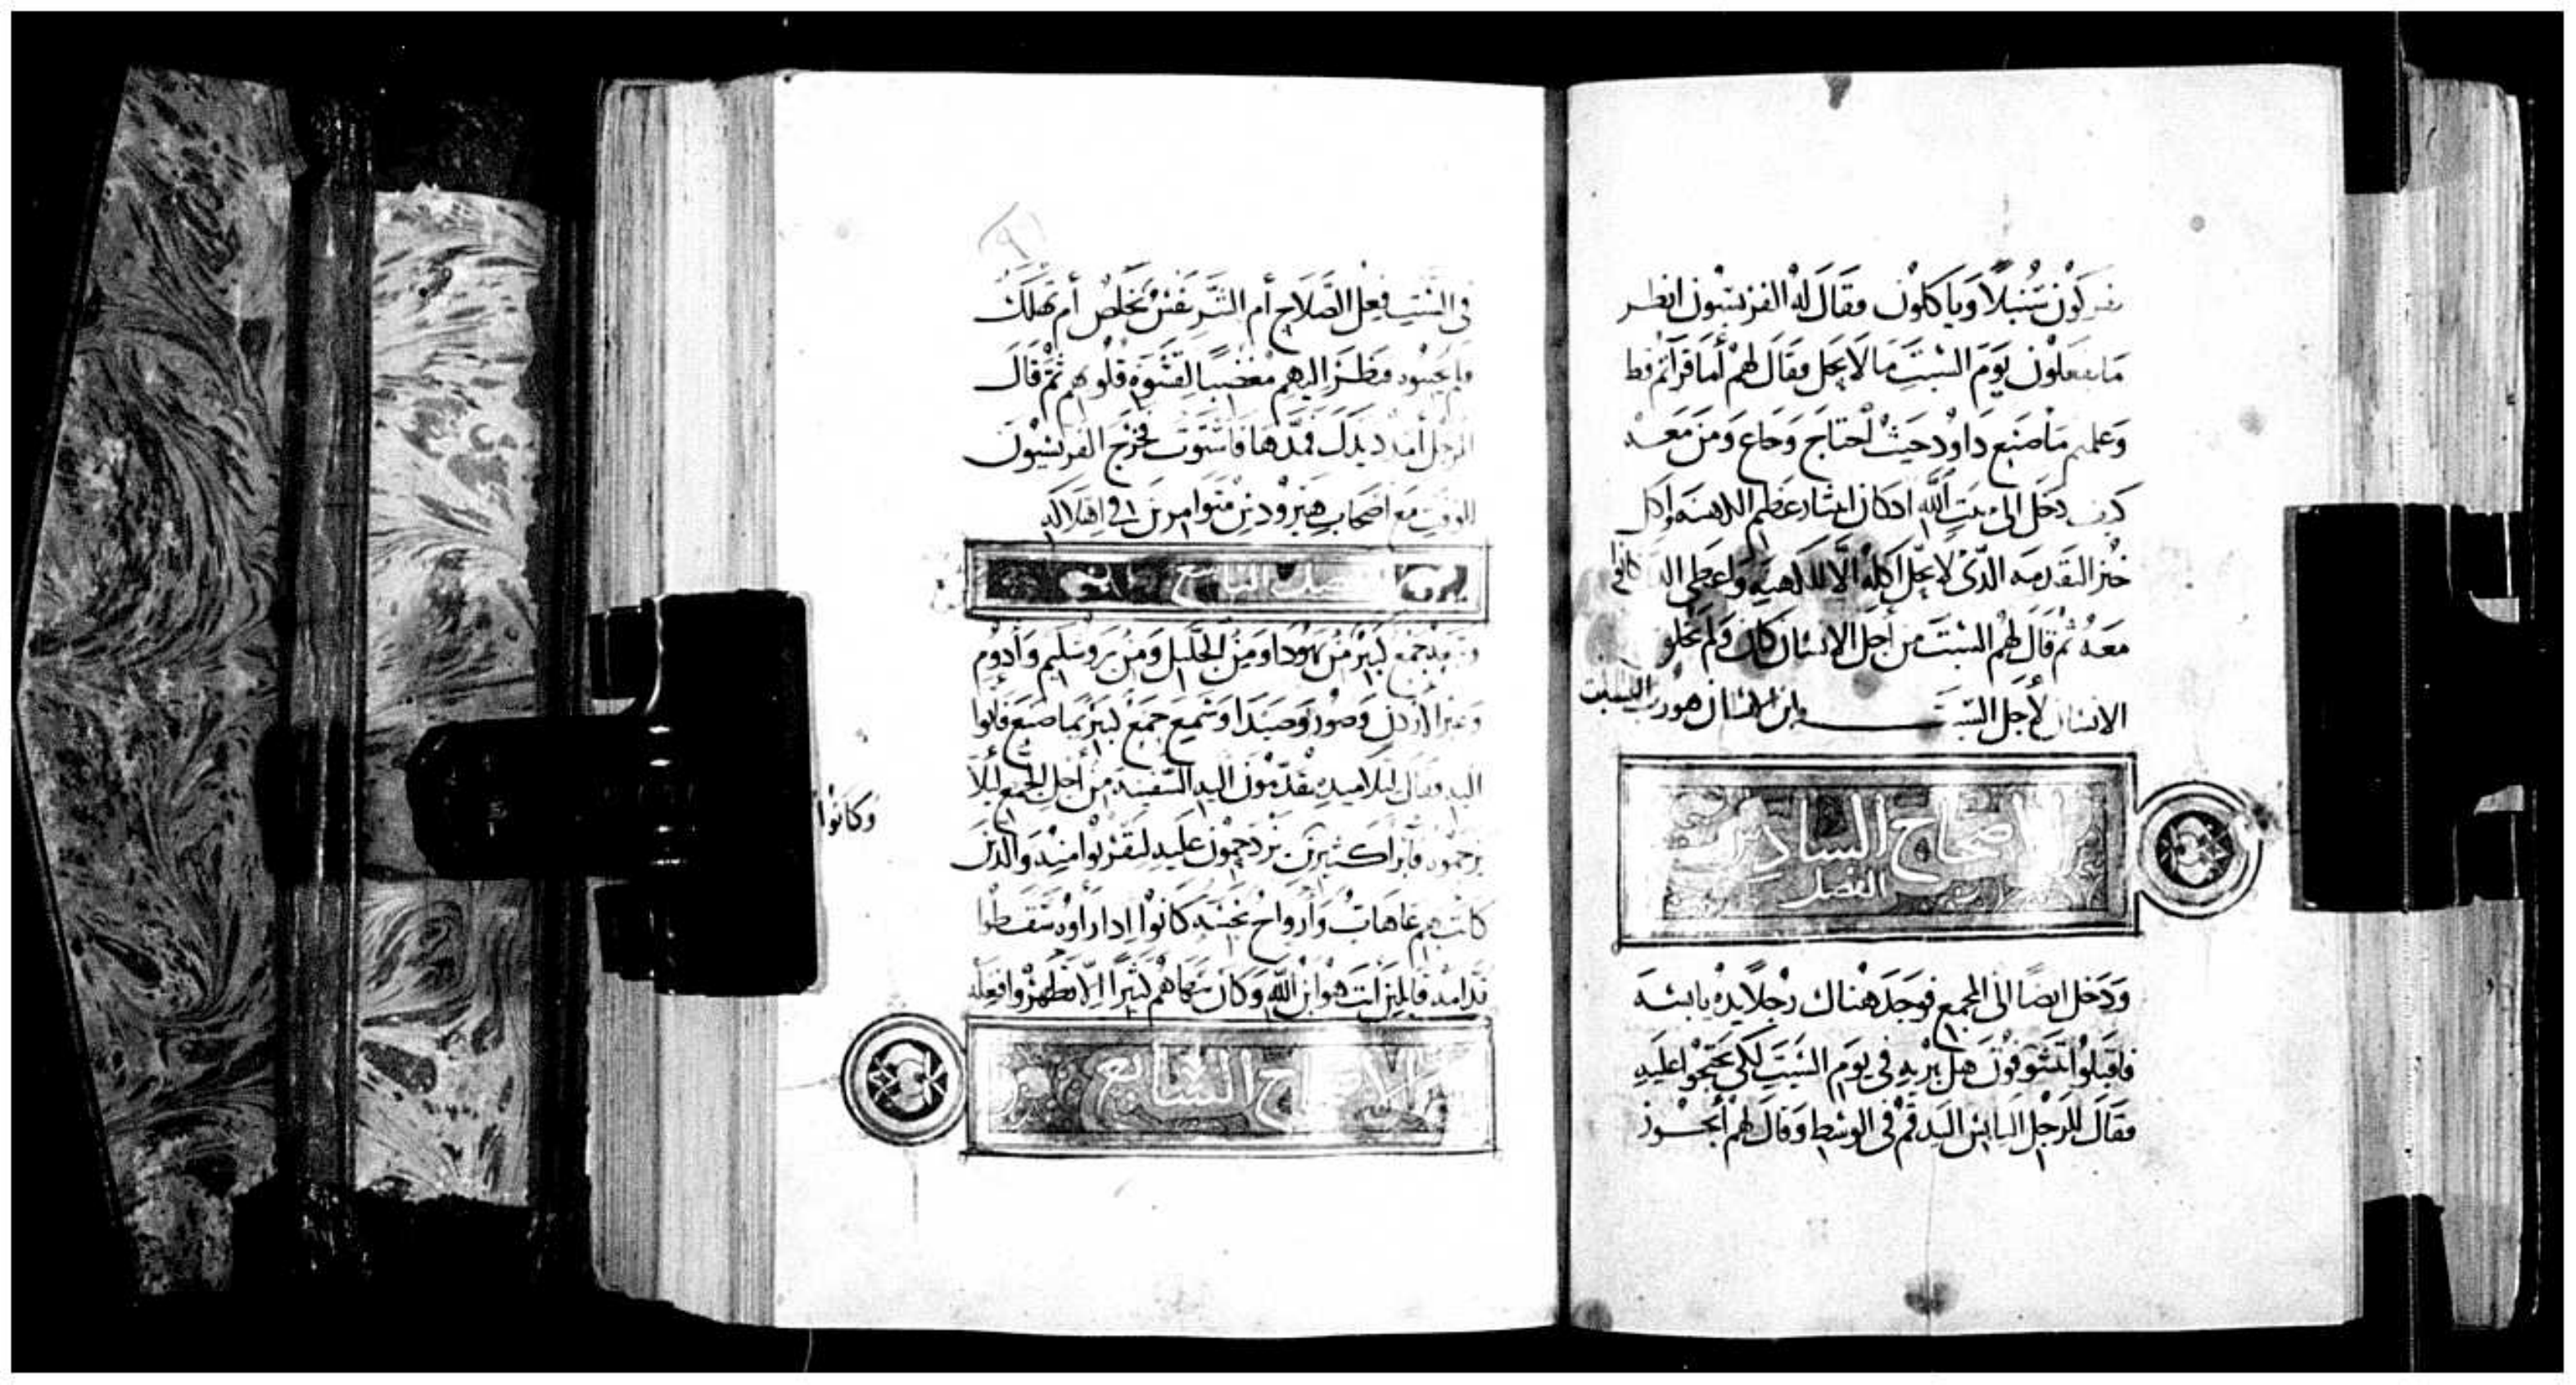 يفركون سنبلا وياكلون فقال له الفريسيون انظر
ما يفعلون يوم السبت ما لا يحل فقال لهم أما قرأتم قط
وعلمتم ما صنع داود حيث احتاج وجاع ومن معه
كيف دخل الى بيت الله اذ كان ابيثار عظيم الكهنه وأكل
خبز التقدمه الذى لا يحل أكله الا للكهنه وأعطى الذ كانوا
معه ثم قال لهم السبت من أجل الانسان كان ولم
الانسان لأجل السبت وابن الانسان هو رب السبت
الاصحاح السادس
الفصل
ودخل ايضا الى المجمع فوجد هناك رجلا يده يابسه
فاقبلوا يتشوفون هل يبريه في يوم السبت لكى يحتجوا عليه
فقال للرجل اليابس اليد قم في الوسط وقال لهم أيجوز
في السبت فعل الصلاح أم الشر نفس تخلص أم تهلك
فلم يجيبوه فنظر اليهم مغضبا لقسوة قلوبهم ثم قال
للرجل أمدد يدك فمدها فاستوت فخرج الفريسيون
للوقت مع أصحاب هيرودس متوامرين في اهلاكه
الفصل التاسع
وتبعه جمع كبير من يهودا ومن الجليل ومن يروشليم وأدوم
وعبر الاردن وصور وصيدا وسميع جمع كبير بما صنع فأتوا
اليه فقال لتلاميده يقدمون اليه السفينه من أجل الجمع ليلا
يزحموه فأبرا كثيرين يزدحمون عليه ليقتربوا منه والدين
وكانوا
كانت بهم عاهات وأرواح نجسه كانوا ادا رأوه سقطوا
قدامه قايلين أنت هو ابن الله وكان ينهاهم كثيرا الا تظهروا فعله
الاصحاح السابع